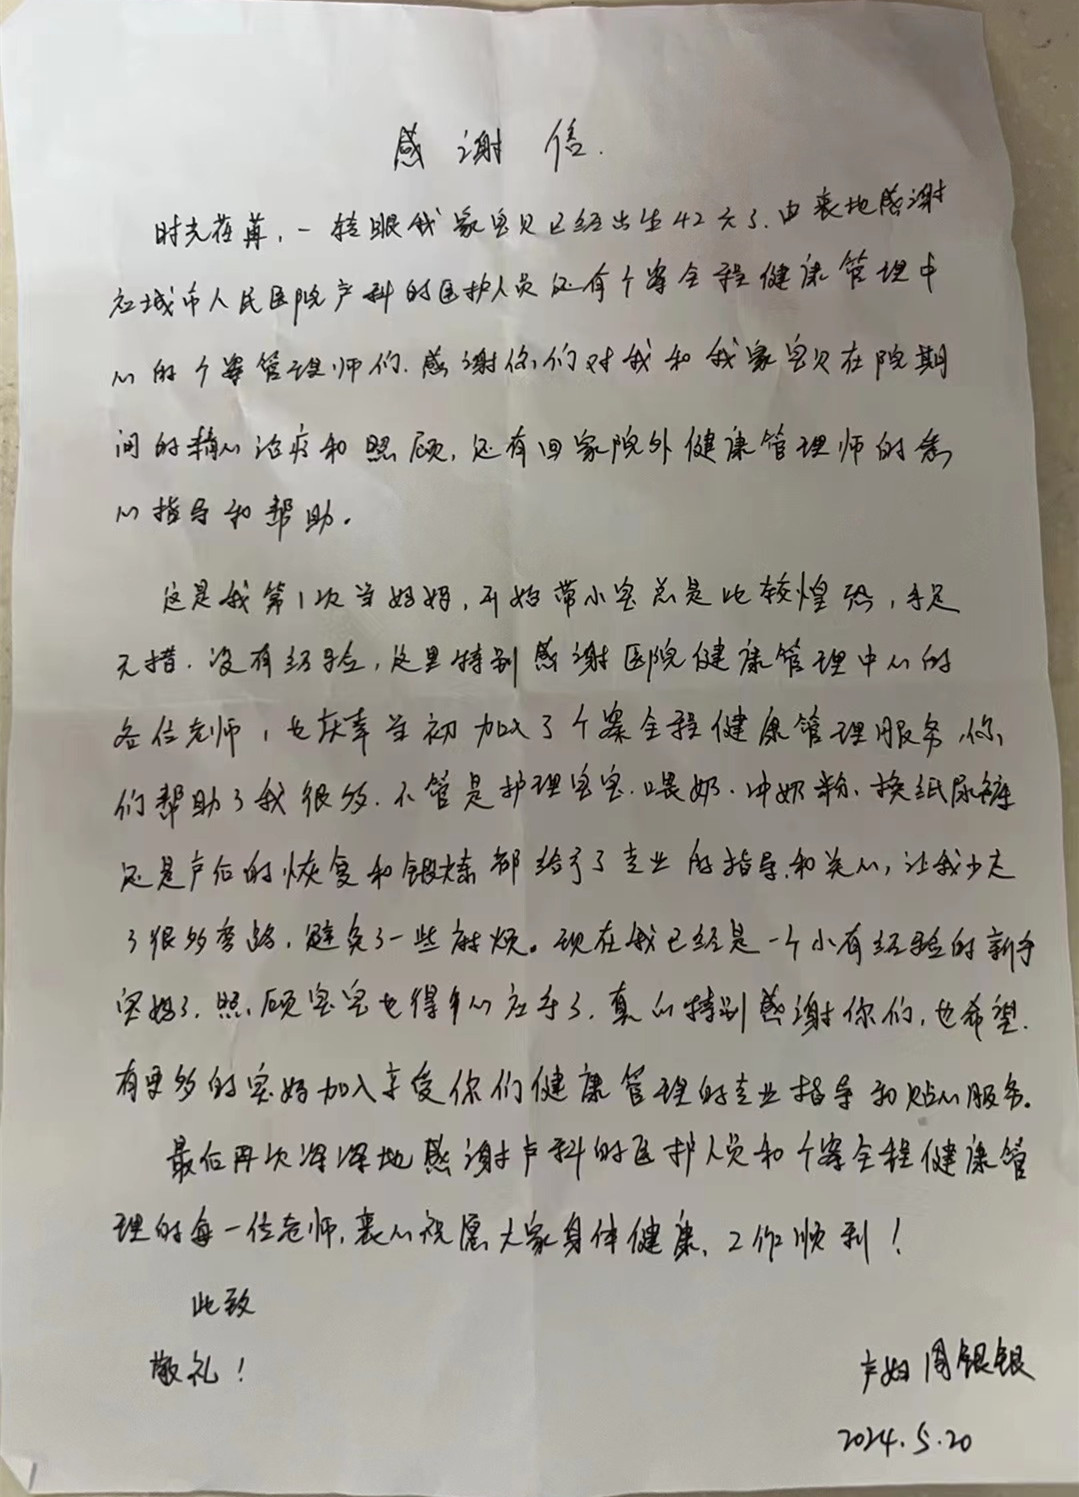 感谢信.
时光荏苒,一转眼我家宝贝已经出生42天了.由衷地感谢
城市人民医院产科的医护人员还有个案全程健康管理中
心的个案管理师们.感谢你们对我和我家宝贝在院期
间的精心治疗和照顾,还有回家院外健康管理师的悉
心指导和帮助。
这是我第1次当妈妈,开始带小宝总是比较惶恐,手足
无措.没有经验,这里特别感谢医院健康管理中心的
各位老师,也庆幸当初加入了个案全程健康管理服务,你
们帮助了我很多.不管是护理宝宝.喂奶.冲奶粉.换纸尿裤
还是产后的恢复和锻炼都给予了专业的指导和关心,让我少走
了很多弯路,避免了一些麻烦。现在我已经是一个小有经验的新手
宝妈了.照顾宝宝也得心应手了.真的特别感谢你们,也希望.
有更多的宝妈加入享受你们健康管理的专业指导和贴心服务。
最后再次深深地感谢产科的医护人员和个案全程健康管
理的每一位老师,衷心祝愿大家身体健康,工作顺利!
此致
敬礼!
产妇周银银
2024.5.20